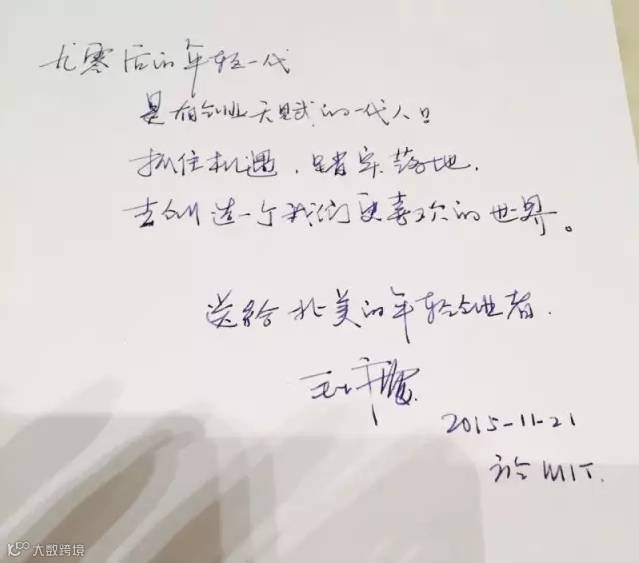 九零后的年轻一代
是有创业天赋的一代人口
抓住机遇，踏实落地，
去创造一个我们更喜欢的世界。
送给北美的年轻创业者.
王
2015-11-21
于 MIT.
大数跨境